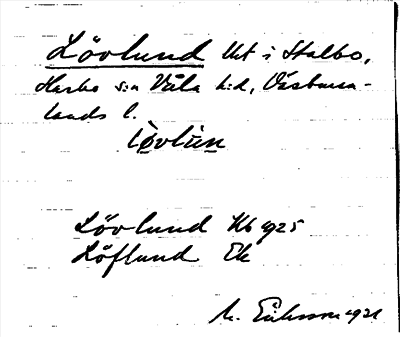 Lövlund Ht i Stalbo,
Harbo s:n Våla h:d, Västman-
lands l.
lövlùn
Lövlund Kb 1925
Löflund Ek
M. Eriksson 1921